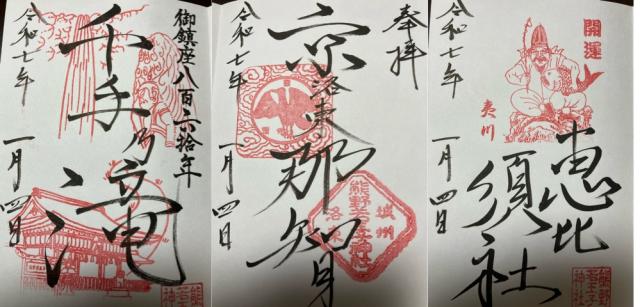 御鎮座八百六拾年
千手乃滝
令和七年 一月四日
奉拝
京洛東那智
城州
熊野若王子神社
洛東
令和七年 一月四日
開運
夷川
恵比須社
令和七年 一月四日